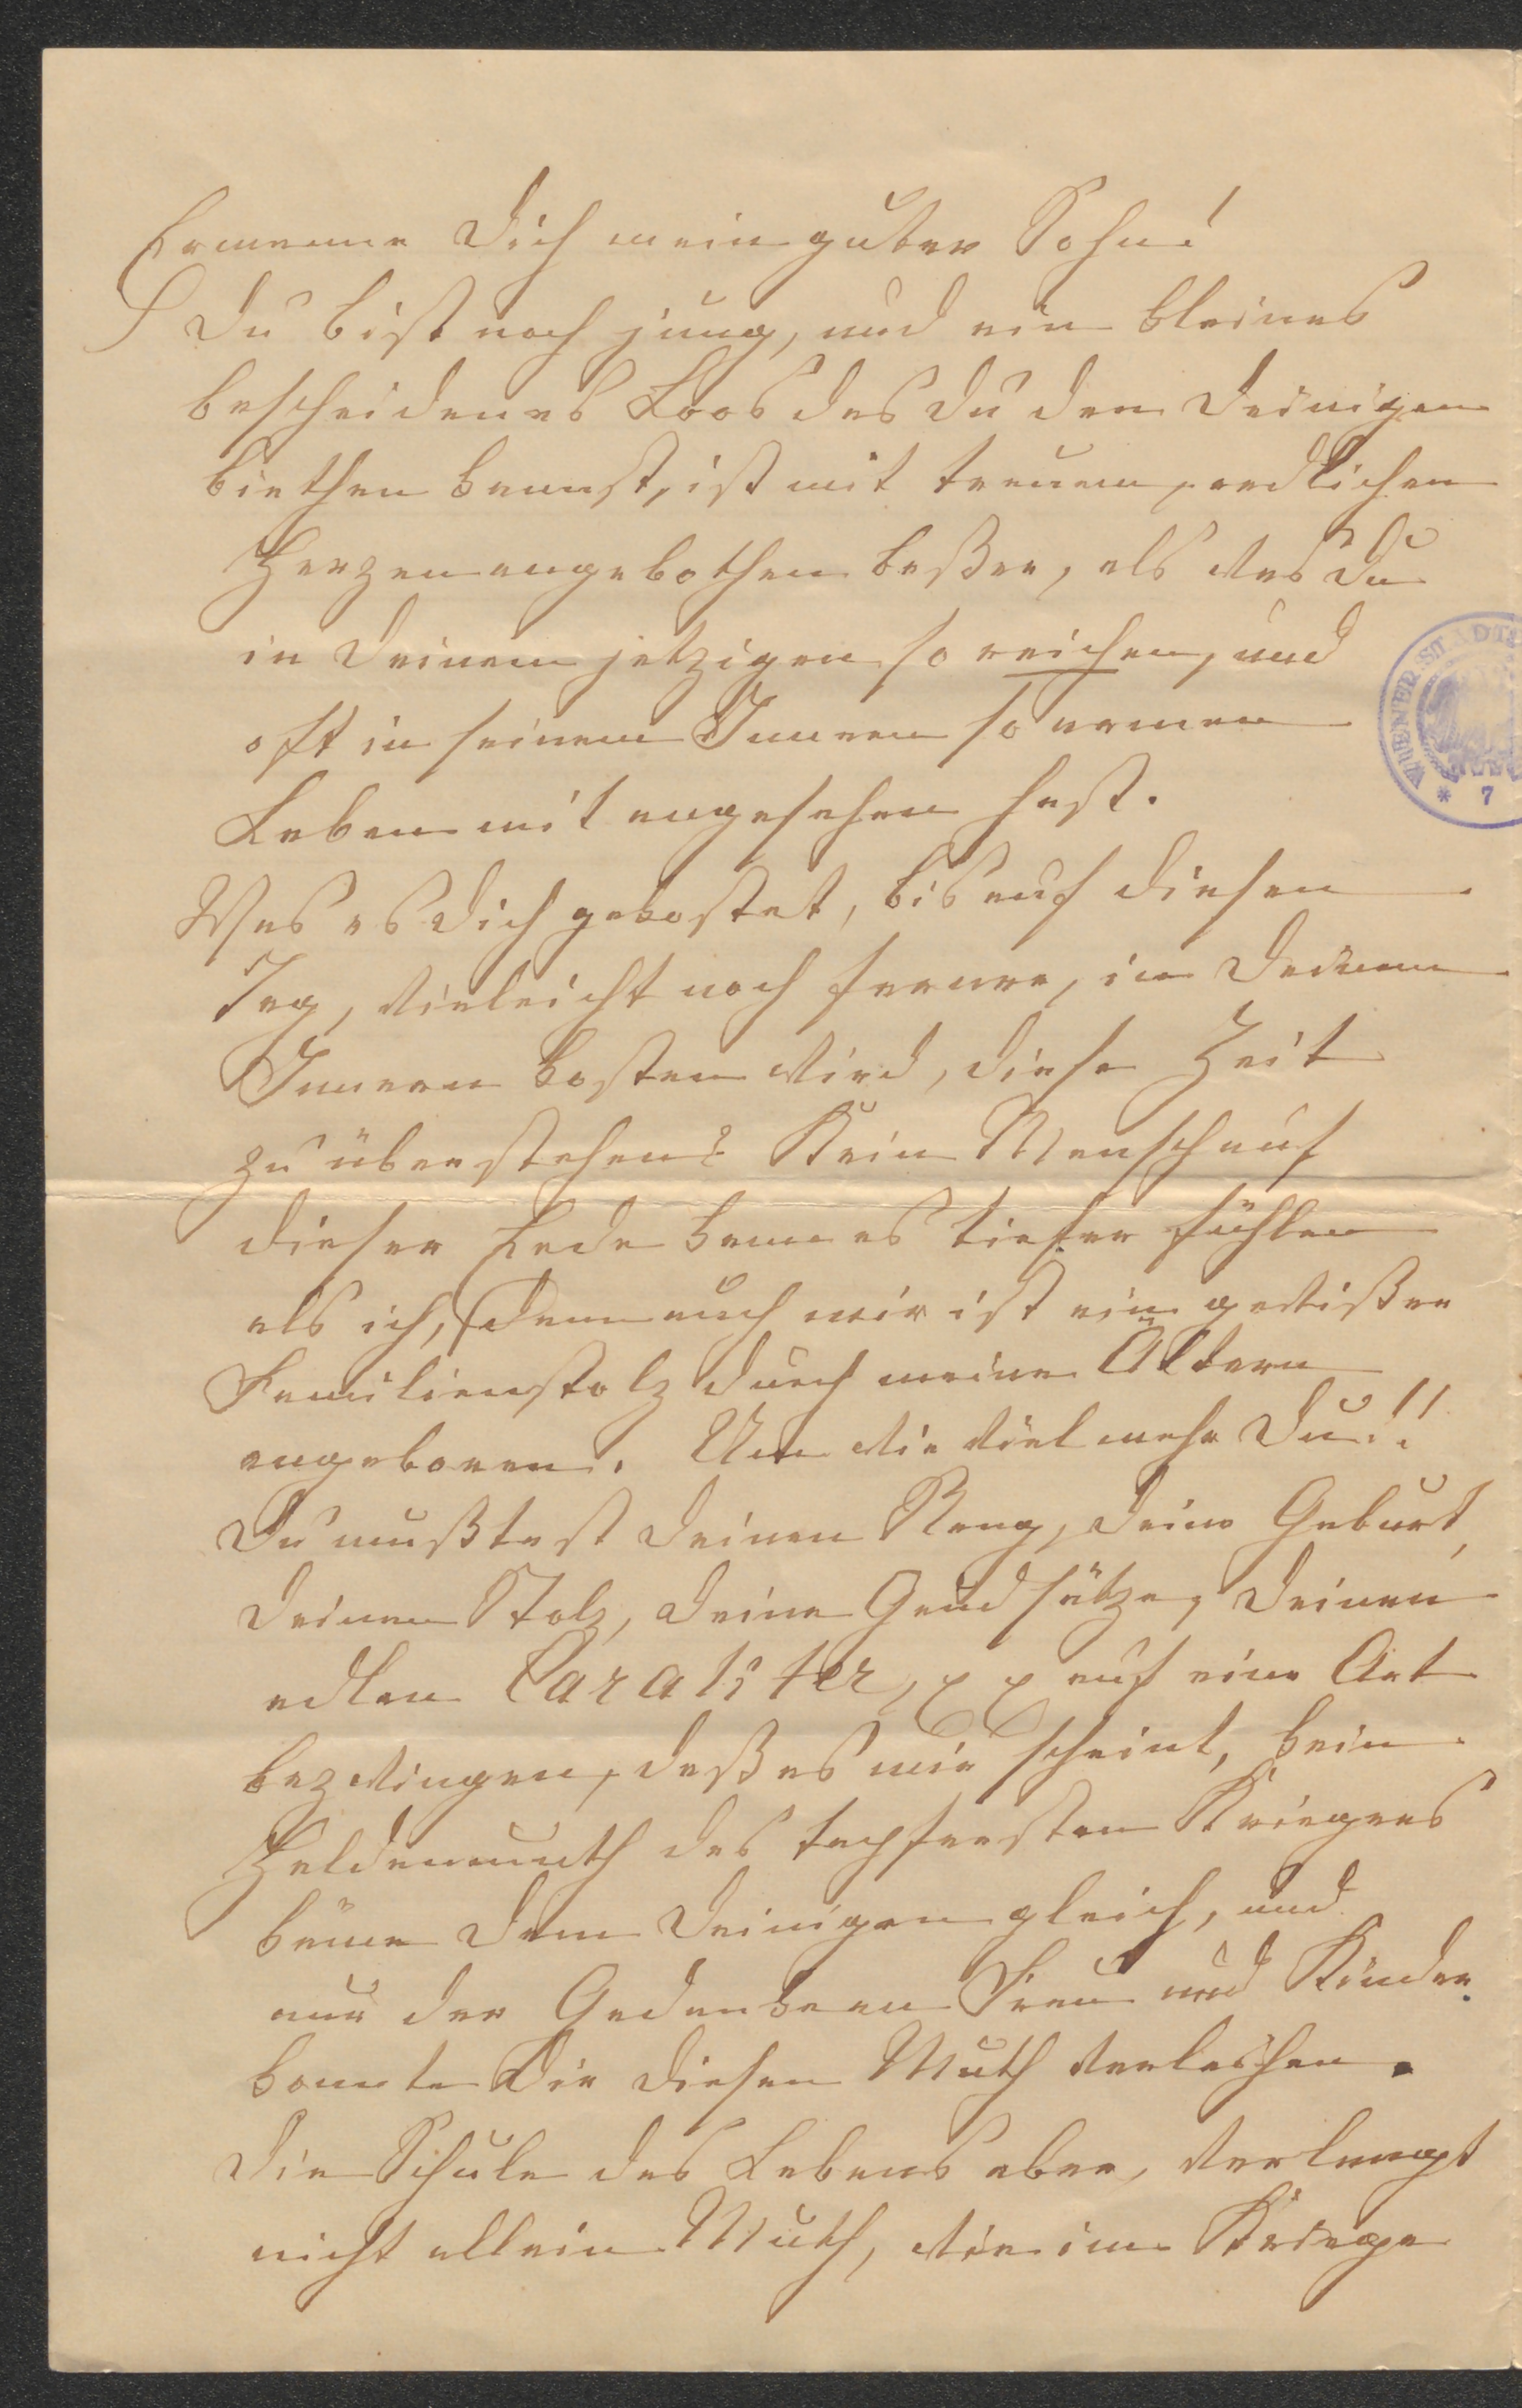 Ermanne Dich mein guter Sohn!
Du bist noch jung, und ein kleines
bescheidenes Loos das Du den Deinigen
biethen kannst, ist mit treuem, redlichen
Herzen angebothen beßer, als was Du
in Deinem jetzigen so reichen, und
oft in seinem Innern so armen
Leben mit angesehen hast.
Was es Dich gekostet, bis auf diesen
Tag, vieleicht noch ferner, in Deinem
Innern kosten wird, diese Zeit
zu überstehen? Kein Mensch auf
dieser Erde kann es tiefer fühlen
als ich, denn auch mir ist ein gewißer
Familienstolz durch meine Ältern
angeboren. Um wie viel mehr Du!!
Du mußtest Deinen Rang, Deine Geburt,
Deinen Stolz, Deine Grundsätze, Deinen
edlen Carakter, x x auf eine Art
bezwingen, daß es mir scheint, kein
Heldenmuth des tapfersten Kriegers
käme dem Deinigen gleich, und
nur der Gedanke an Frau und Kinder
konnte Dir diesen Muth verleihen.
Die Schule des Lebens aber, verlangt
nicht allein Muth, wie im Kriege
WIENER STADT
* 7